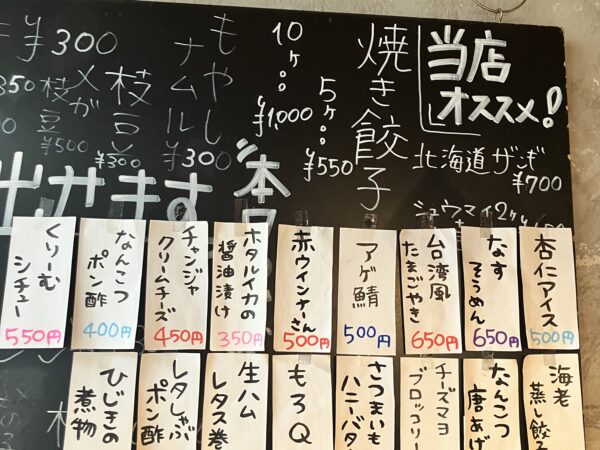 当店
オススメ!
北海道ザンギ
¥700
シュウマイ2ヶ
焼き餃子
5ヶ
¥550
10ヶ
¥1,000
もやし
ナムル
¥300
枝豆
¥300
メガ
枝豆
¥500
¥300
350
出せます
本日
杏仁アイス
500円
なす
そうめん
650円
台湾風
たまごやき
650円
アゲ鯖
500円
赤ウインナーさん
500円
ホタルイカの
醤油漬け
350円
チャンジャ
クリームチーズ
450円
なんこつ
ポン酢
400円
くりーむ
シチュー
550円
海老
蒸し餃子
なんこつ
唐あげ
チーズマヨ
ブロッコリー
さつまいも
ハニーバター
もろQ
生ハム
レタス巻
レタしゃぶ
ポン酢
ひじきの
煮物